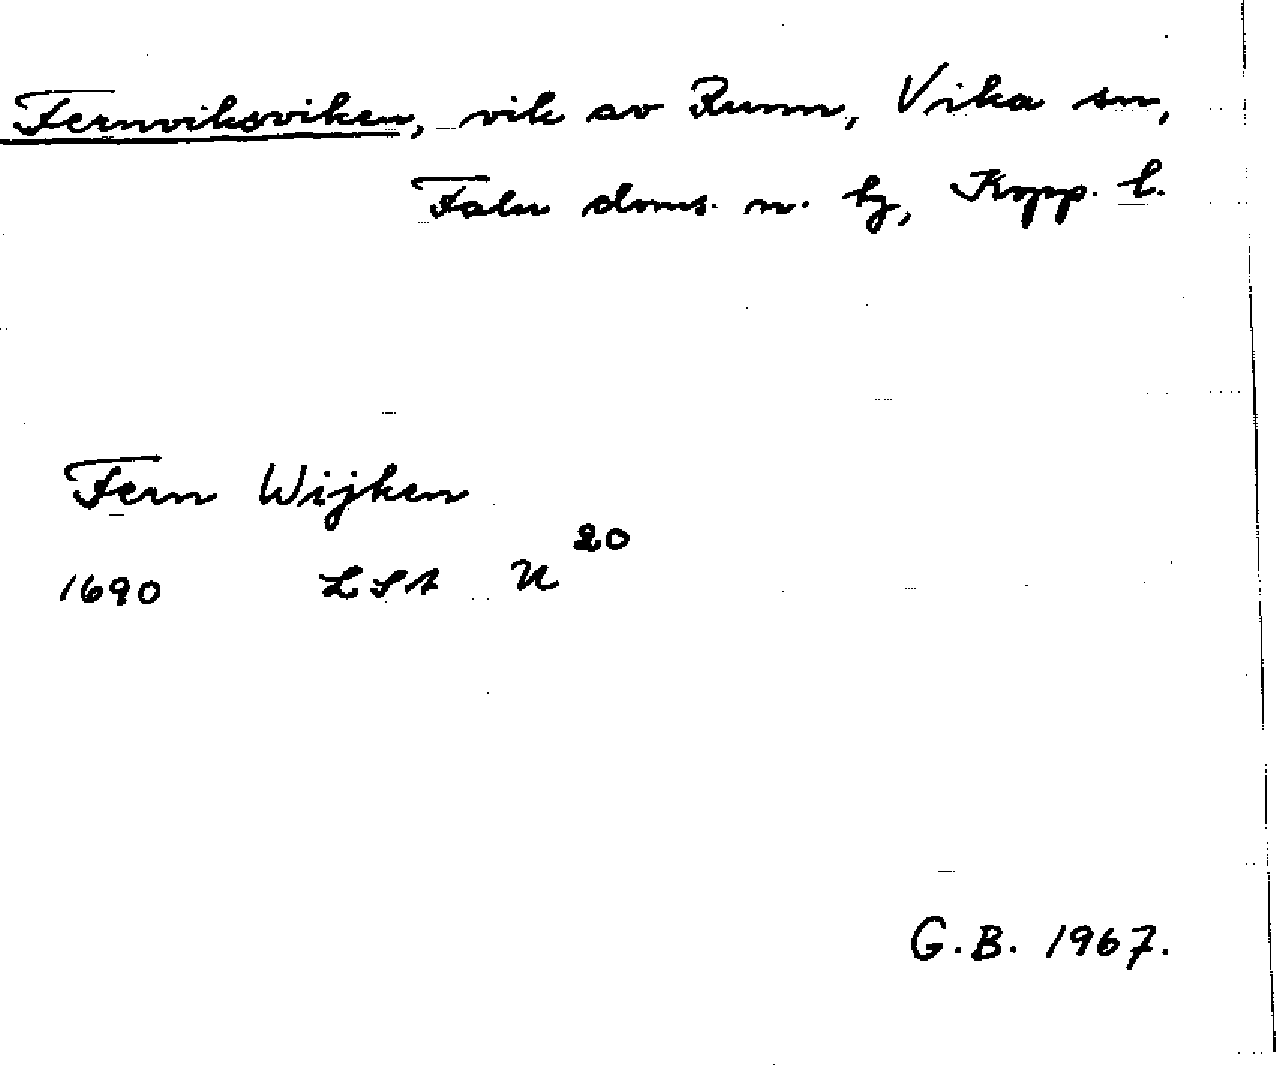 Fernviksviken, vik av Runn, Vika sn,
Falu doms. n. tg, Kopp. l.
Fern Wijken
1690 LSA U 20
G.B. 1967.